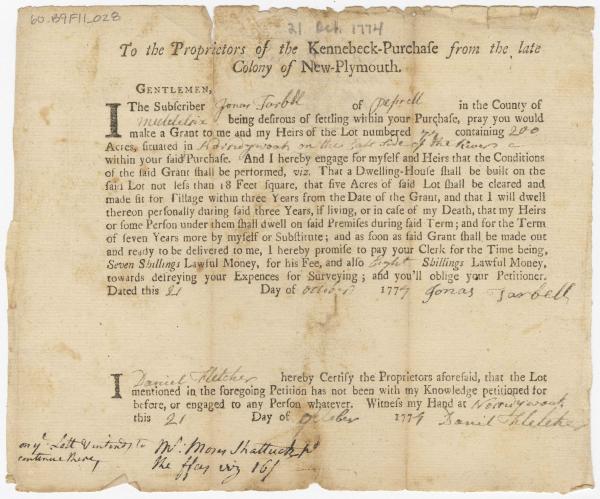 60.B9F11_028
21 Oct. 1774
To the Proprietors of the Kennebeck-Purchase from the late
Colony of New-Plymouth.
GENTLEMEN,
I The Subscriber Jonas Tarbell of Pepirell in the County of
Middelsix being desirous of settling within your Purchase, pray you would
make a Grant to me and my Heirs of the Lot numbered containing 200
Acres, situated in Norridgwook on the East side of the River
within your said Purchase. And I hereby engage for myself and Heirs that the Conditions
of the said Grant shall be performed, viz. That a Dwelling-House shall be built on the
said Lot not less than 18 Feet square, that five Acres of said Lot shall be cleared and
made fit for Tillage within three Years from the Date of the Grant, and that I will dwell
thereon personally during said three Years, if living, or in case of my Death, that my Heirs
or some Person under them shall dwell on said Premises during said Term; and for the Term
of seven Years more by myself or Substitute; and as soon as said Grant shall be made out
and ready to be delivered to me, I hereby promise to pay your Clerk for the Time being,
Seven Shillings Lawful Money, for his Fee, and also Eight Shillings Lawful Money,
towards defreying your Expences for Surveying; and you'll oblige your Petitioner.
Dated this 21 Day of October 1774 Jonas Tarbell
I Daniel Fletcher hereby Certify the Proprietors aforesaid, that the Lot
mentioned in the foregoing Petition has not been with my Knowledge petitioned for
before, or engaged to any Person whatever. Witness my Hand at Norridgwook
this 21 Day of October 1774 Daniel Fletcher
on ye Lott & intends to
continue there,
Mr. Moses Shattuck pd
the ffees viz 16/